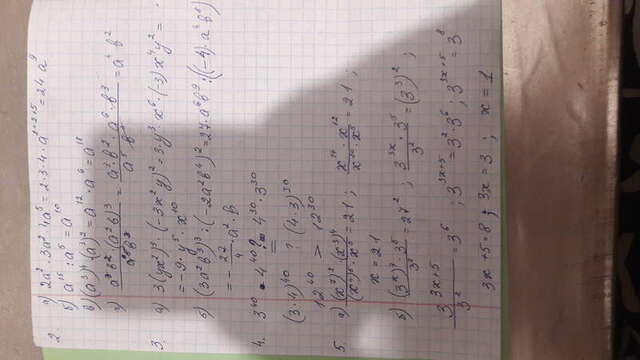 2. а) 2a² · 3a² · 4a⁵ = 2·3·4·a²⁺²⁺⁵ = 24a⁹
б) a¹⁵ : a⁵ = a¹⁰
в) (a³)⁴ · (a³)² = a¹² · a⁶ = a¹⁸
г) a³b² · (a²b)³ / a⁵b³ = a³·b²·a⁶·b³ / a⁵ b³ = a⁴ b²
3. а) 3(yx²)³ · (-3x²y)² = 3·y³·x⁶·(-3)x⁴y² =
= -9·y⁵·x¹⁰
б) (3a²b³)³ : (-2a²b⁴)² = 27·a⁶b⁹ : ((-4)·a⁴b⁸)
= - 27/4 · a²·b
4. 3⁴⁰ · 4⁴⁰ ? 4³⁰·3³⁰
(3·4)⁴⁰ ? (4·3)³⁰
12⁴⁰ > 12³⁰
5. а) (x⁷)²·(x³)⁴ / (x⁴)⁵·x⁵ = 21 ; x¹⁴·x¹² / x²⁰·x⁵ = 21 ;
x = 21
б) (3ˣ)³·3⁵ / 3² = 27² ; 3³ˣ·3⁵ / 3² = (3³)² ;
3³ˣ⁺⁵ / 3² = 3⁶ ; 3³ˣ⁺⁵ = 3²·3⁶ ; 3³ˣ⁺⁵ = 3⁸
3x + 5 = 8 ; 3x = 3 ; x = 1